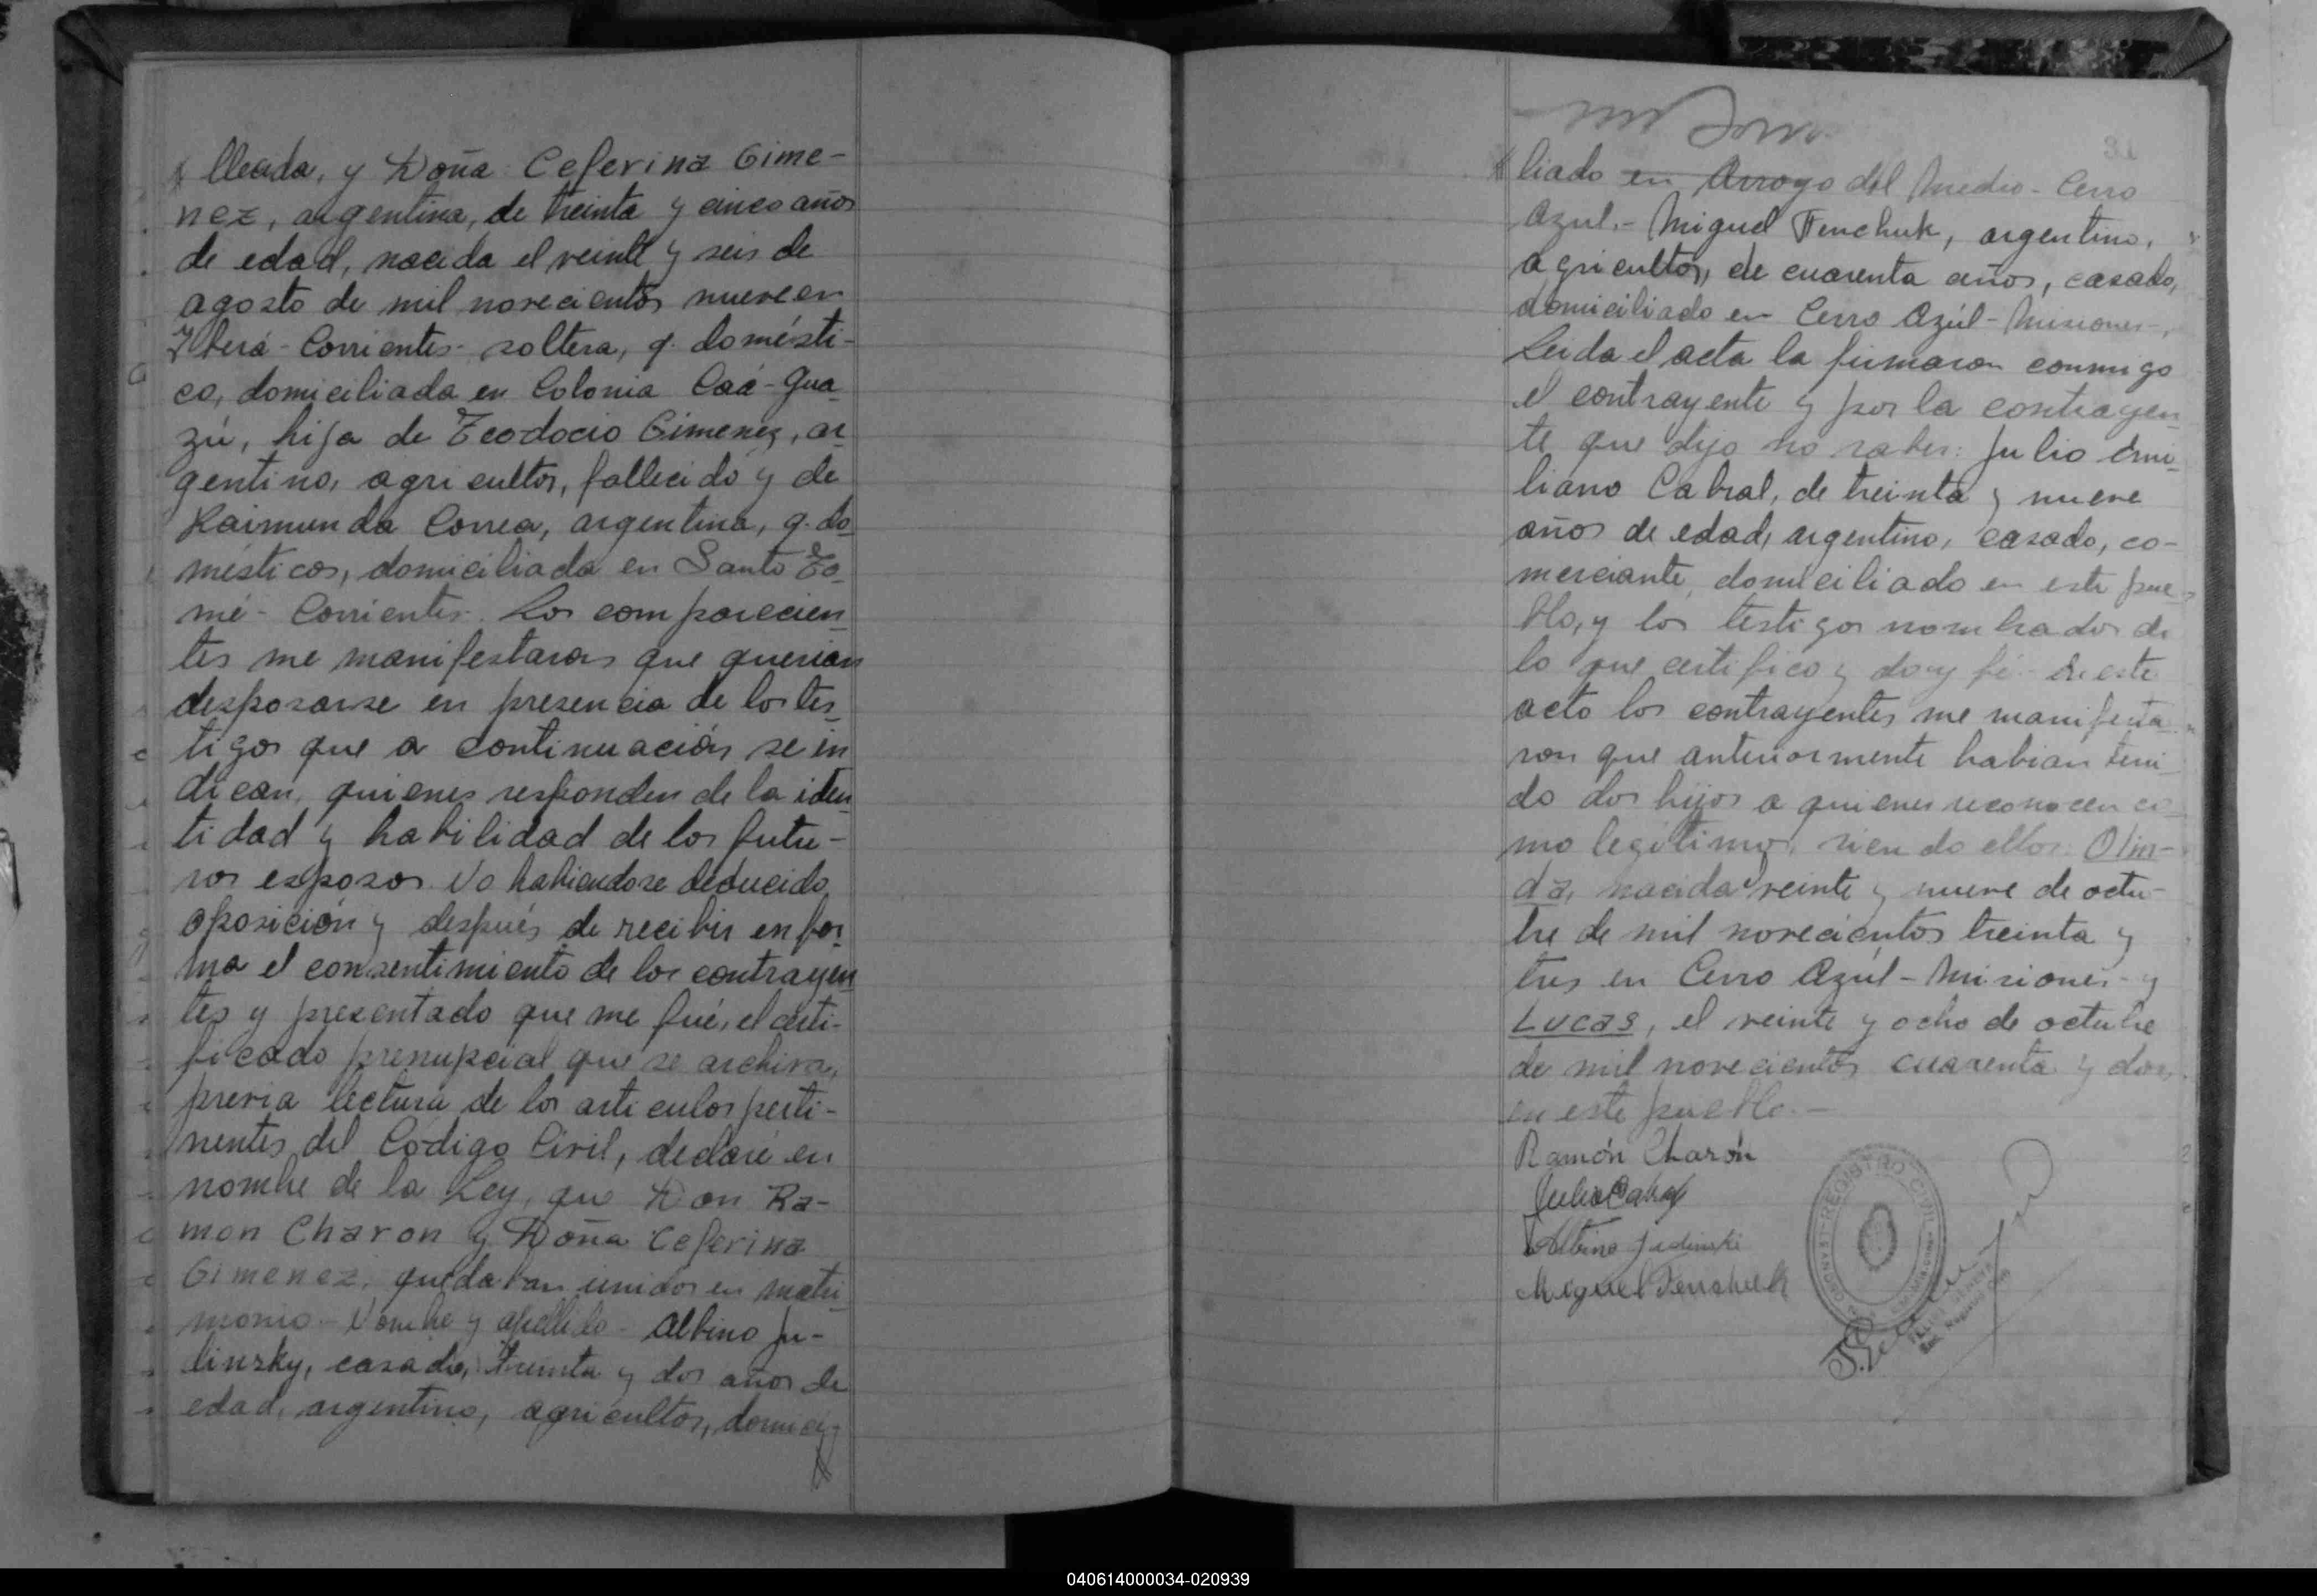 llecida, y Doña Ceferina Gime-
nez, argentina, de treinta y cinco años
de edad, nacida el veinte y seis de
agosto de mil novecientos nueve en
Yberá - Corrientes - soltera, q. domésti-
co, domiciliada en Colonia Caá-Gua
zú, hija de Teodocio Gimenez, ar
gentino, agricultor, fallecido y de
Raimunda Correa, argentina, q. do
mésticos, domiciliada en Santo To
mé - Corrientes. Los comparecien
tes me manifestaron que querian
desposarse en presencia de los tes
tigos que a continuación se in
dican, quienes responden de la iden
tidad y habilidad de los futu-
ros esposos. No habiendose deducido
oposición y después de recibir en for
ma el consentimiento de los contrayen
tes y presentado que me fué, el certi-
ficado prenupcial que se archiva,
previa lectura de los articulos perti-
nentes del Código Civil, declaré en
nombre de la Ley, que Don Ra-
mon Charon y Doña Ceferina
Gimenez, quedaban unidos en matri
monio - Nombre y apellido - Albino Ju-
linsky, casado, treinta y dos años de
edad, argentino, agricultor, domici
31
liado en Arroyo del Medio - Cerro
Azul.- Miguel Tenchuk, argentino,
agricultor, de cuarenta años, casado,
domiciliado en Cerro Azúl - Misiones -
Leida el acta la firmaron conmigo
el contrayente y por la contrayen
te que dijo no saber: Julio Emi
liano Cabral, de treinta y nueve
años de edad, argentino, casado, co-
merciante, domiciliado en este pue
blo, y los testigos nombrados de
lo que certifico y doy fé - En este
acto los contrayentes me manifesta
ron que anteriormente habian teni
do dos hijos a quienes reconocen co
mo legítimos, siendo ellos: Olin-
da, nacida veinte y nueve de octu-
bre de mil novecientos treinta y
tres en Cerro Azúl - Misiones - y
Lucas, el veinte y ocho de octubre
de mil novecientos cuarenta y dos,
en este pueblo.-
Ramón Charón
Julio Cabral
Albino Judinski
Miguel Tenchuk
REGISTRO CIVIL
040614000034-020939